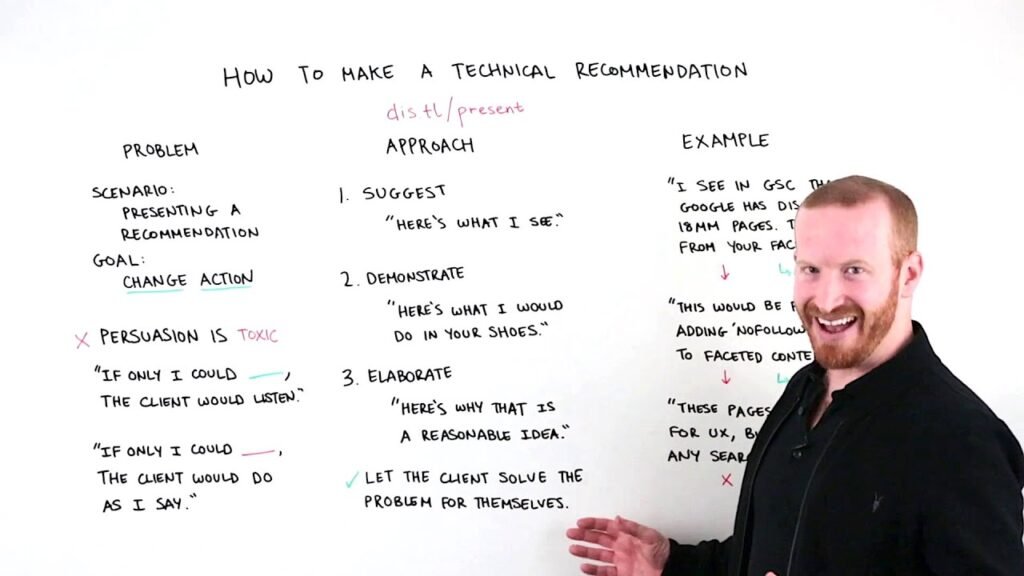 HOW TO MAKE A TECHNICAL RECOMMENDATION
distl/present
PROBLEM
SCENARIO:
PRESENTING A
RECOMMENDATION
GOAL:
CHANGE ACTION
X PERSUASION IS TOXIC
"IF ONLY I COULD ___,
THE CLIENT WOULD LISTEN."
"IF ONLY I COULD ___,
THE CLIENT WOULD DO
AS I SAY."
APPROACH
1. SUGGEST
"HERE'S WHAT I SEE."
2. DEMONSTRATE
"HERE'S WHAT I WOULD
DO IN YOUR SHOES."
3. ELABORATE
"HERE'S WHY THAT IS
A REASONABLE IDEA."
✓ LET THE CLIENT SOLVE THE
PROBLEM FOR THEMSELVES.
EXAMPLE
"I SEE IN GSC
GOOGLE HAS
18MM PAGES.
FROM YOUR
"THIS WOULD BE
ADDING 'NOFOLLOW
TO FACETED
"THESE PAGES
FOR UX,
ANY
X